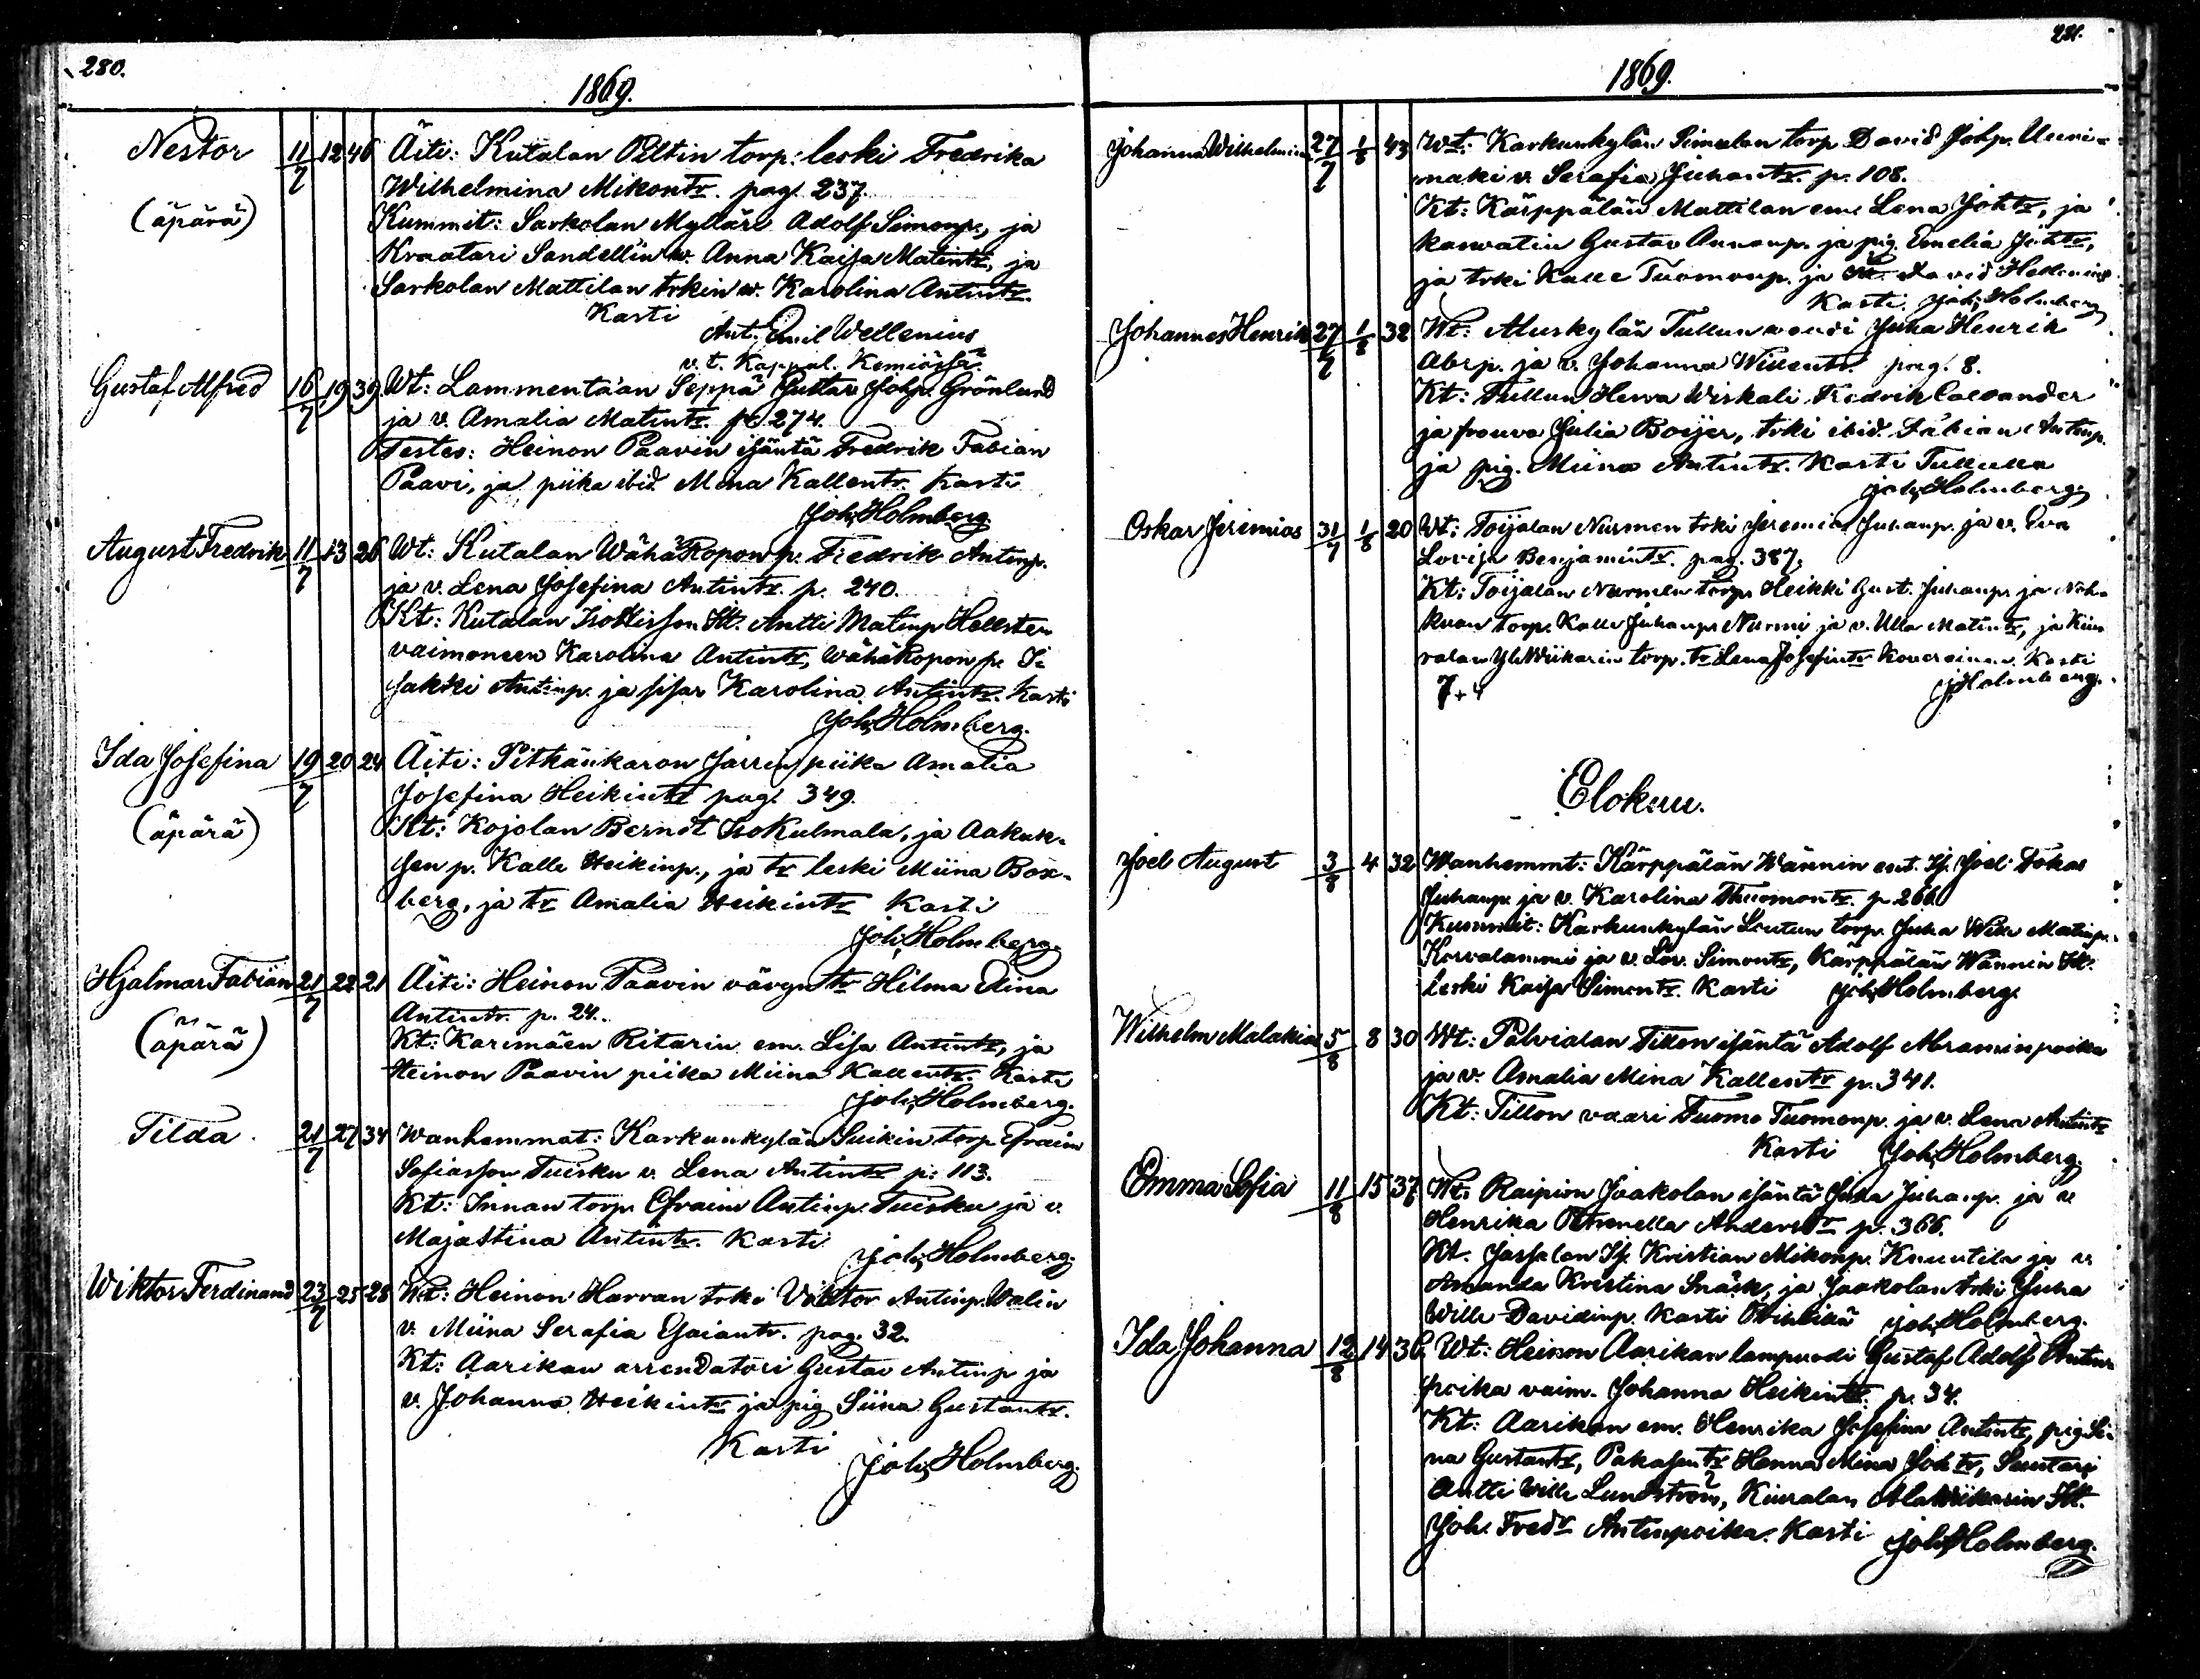 280.
1869.
Nestor 11/7 12 46 Äiti: Kutalan Piltin torp: leski Fredrika
Wilhelmina Mikontr. pag. 237.
(äpärä) Kummit: Sarkolan Mylläri Adolf Simonp., ja
Kraatari Sandellin w. Anna Kaisa Matintr, ja
Sarkolan Mattilan trkin w. Karolina Antintr.
Kasti
Ant. Emil Wellenius
v. t. Kappal. Kemiössä.
Gustaf Alfred 16/7 19 39 Wt: Lammentaan Seppä Gustav Johp. Grönlund
ja v. Amalia Matintr. p. 274.
Testes: Heinon Paavin isäntä Fredrik Fabian
Paavi, ja piika ibid. Mina Kallentr. Kasti
Joh. Holmberg
August Fredrik 11/7 13 26 Wt: Kutalan WähäRopon p. Fredrik Antinp.
ja v. Lena Josefina Antintr. p. 240.
Kt: Kutalan Antti Matinp Hellsten
vaimoneen Karolina Antintr, WähäRopon p.
Antinp. ja sisar Karolina Antintr. Kasti
Joh. Holmberg.
Ida Josefina 19/7 20 24 Äiti: Pitkänkaron Jarrin piika Amalia
Josefina Heikintr pag. 349.
(äpärä) Kt: Kojolan Berndt IsoKulmala, ja Aakuk-
sen p. Kalle Heikinp., ja tr leski Miina Box-
berg, ja tr Amalia Heikintr Kasti
Joh. Holmberg.
Hjalmar Fabian 21/7 22 21 Äiti: Heinon Paavin vävyn tr Hilma Aina
Antintr. p. 24.
(äpärä) Kt: Karimäen Ritarin em. Lisa Antintr, ja
Heinon Paavin piika Miina Kallentr. Kasti
Joh. Holmberg.
Tilda. 21/7 27 34 Wanhemmat: Karkunkylän Suikin torp Efraim
Sofiasson Tuisku v. Lena Antintr p: 113.
Kt: Innan torp. Efraim Antinp. Tuisku ja v.
Majastina Antintr. Kasti
Joh. Holmberg.
Wiktor Ferdinand 23/7 25 28 Wt: Heinon Harran trki Viktor Antinp. Walin
v. Miina Serafia Esaiantr. pag. 32.
Kt: Aarikan arrendatori Gustav Antinp ja
v. Johanna Heikintr ja pig Siina Gustavtr.
Kasti
Joh. Holmberg.
281.
1869.
Johanna Wilhelmina 27/7 1/8 43 Wt: Karkunkylän Simulan torp David Johp. Uuni-
maki v. Serafia Juhantr. p. 108.
Kt: Kärppälän Mattilan em. Lena Johtr, ja
Gustav ja pig. Emelia Johtr,
ja trki Kalle Tuomonp. ja David
Kasti. Joh. Holmberg
Johannes Henrik 27/7 1/8 32 Wt: Aluskylän Tullun Juha Henrik
Abrp. ja v. Johanna Willentr. pag. 8.
Kt: Tullun Herra Wiskali Fredrik Calvander
ja frouva Julia Boijer, trki ibid. Fabian Antinp.
ja pig. Miina Antintr. Kasti Tullulla
Joh. Holmberg
Oskar Jeremias 31/7 1/8 20 Wt: Toijalan Nurmen trki Jeremias Juhanp. ja v. Eva
Lovisa Benjamintr. pag. 387.
Kt: Toijalan Nurmen torp. Heikki Gust. Juhanp. ja
torp. Kalle Juhanp. Nurmi ja v. Ulla Matintr, ja Kiu-
ralan torp. tr Lena Josefintr Kasti
7+4 J. Holmberg.
Elokuu.
Joel August 3/8 4 32 Wanhemmt: Kärppälän Wännin Joel
Juhanp. ja v. Karolina Thuomontr. p 266.
Kummit: Karkunkylän torp. Juha Wille Matinp.
ja v. Lov. Simontr, Kärppälän Wännin
leski Kaisa Simontr. Kasti Joh. Holmberg.
Wilhelm Malakias 5/8 8 30 Wt: Pälvialan Tillon isäntä Adolf Abraminpoika
ja v. Amalia Mina Kallentr p. 341.
Kt: Tillon vaari Tuomo Tuomonp. ja v. Lena Antintr
Kasti Joh. Holmberg.
Emma Sofia 11/8 15 37 Wt: Raipion Jaakolan isäntä Juha Juhanp. ja v.
Henrika Petronella Anderstr p. 366.
Kt. Kristian Mikonp. Knuutila ja v.
Amanda Kristina ja Jaakolan trki Juha
Wille Davidinp. Kasti Joh. Holmberg.
Ida Johanna 12/8 14 36 Wt: Heinon Aarikan lampuodi Gustaf Adolf Antin
poika vaim. Johanna Heikintr. p. 34.
Kt: Aarikan em. Henrika Josefina Antintr, pig Si-
na Gustavtr, Hanna Mina Johtr,
Antti Wille Lundström, Kiuralan AlaWiikarin
Joh. Fredr Antinpoika. Kasti Joh. Holmberg.